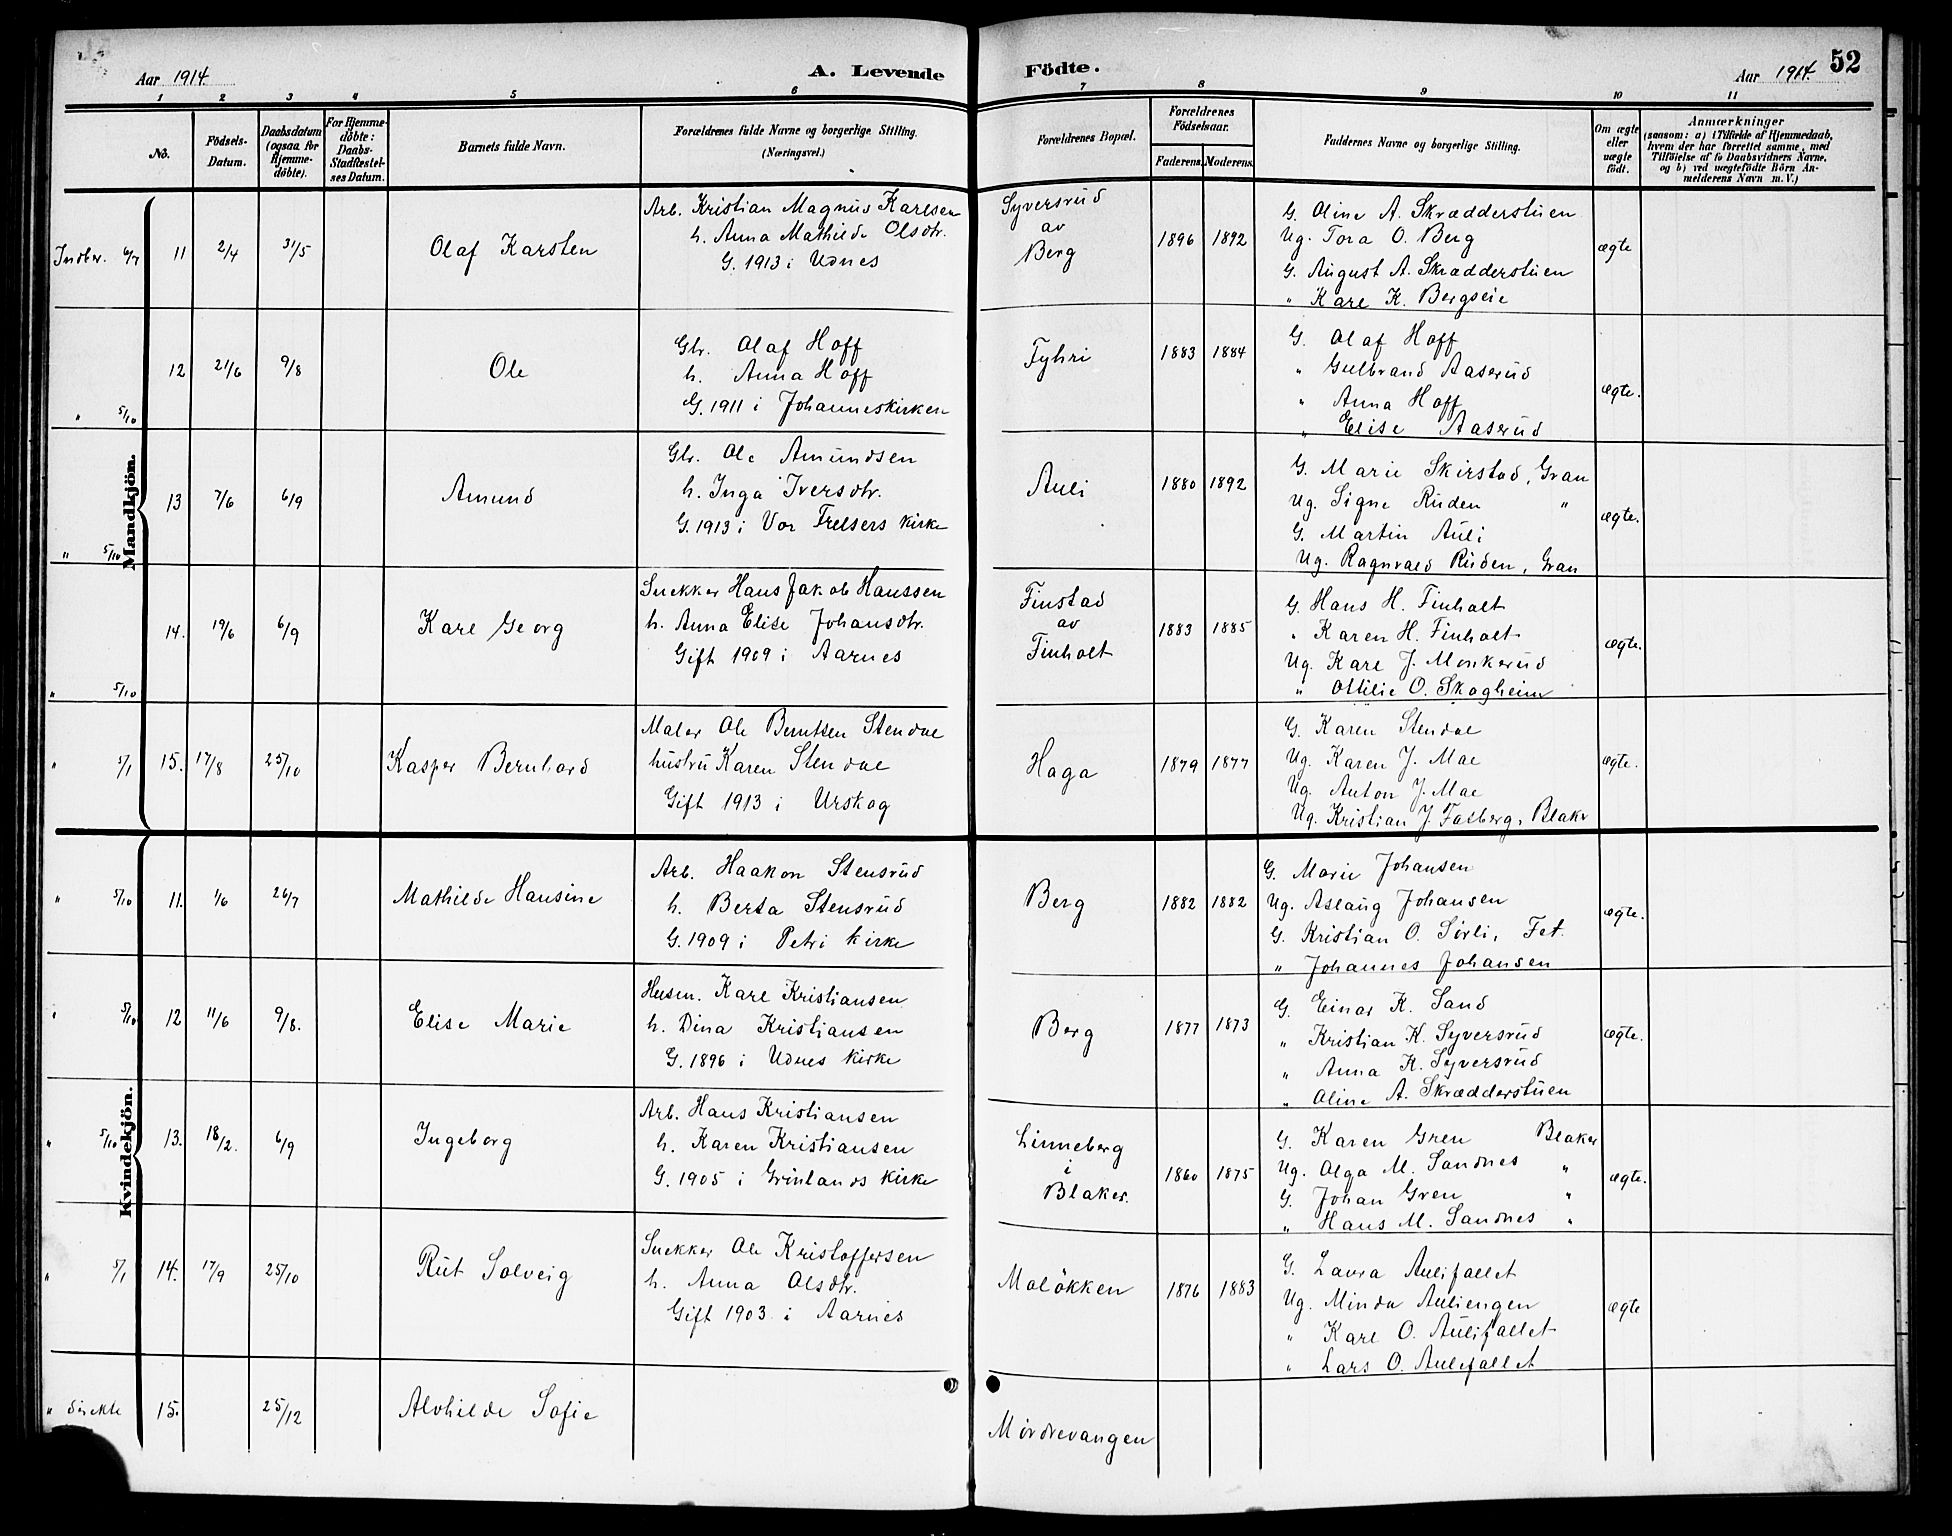 Aar 1914.
A. Levende
Födte.
Aar 1914. 52
1 2 3 4 5 6 7 8 9 10 11
No.
Födsels-
Datum.
Daabsdatum
(ogsaa for
Hjemme-
döbte).
For Hjemme-
döbte:
Daabs-
Stadfæstel-
ses Datum.
Barnets fulde Navn.
Forældrenes fulde Navne og borgerlige Stilling.
(Næringsvei.)
Forældrenes Bopæl.
Forældrenes
Födselsaar.
Faderens. Moderens.
Faddernes Navne og borgerlige Stilling.
Om ægte
eller
uægte
födt.
Anmærkninger
(saasom: a) i Tilfælde af Hjemmedaab,
hvem der har forrettet samme, med
Tilföielse af to Daabsvidners Navne,
og b) ved uægtefödte Börn An-
melderens Navn m. V.)
Mandkjön.
Indber. 6/7 11 2/4 31/5 Olaf Karsten
Arb. Kristian Magnus Karlsen
h. Anna Mathilde Olsdtr.
G. 1913 i Udnes
Syversrud
av
Berg
1896 1892
G. Oline A. Skrædderstuen
Ug. Tora O. Berg
G. August A. Skrædderstuen
" Karl K. Bergseie
ægte
" 5/10 12 21/6 9/8 Ole
Gbr. Olaf Hoff
h. Anna Hoff
G. 1911 i Johanneskirken
Fyhri
1883 1884
G. Olaf Hoff
" Gulbrand Aaserud
" Anna Hoff
" Elise Aaserud
ægte.
" 5/10 13 7/6 6/9 Amund
Gbr. Ole Amundsen
h. Inga Iversdtr.
G. 1913 i Vor Frelsers kirke
Auli
1880 1892
G. Marie Skirstad, Gran
Ug. Signe Ruden "
G. Martin Auli
Ug. Ragnvald Ruden, Gran
ægte.
" 5/10 14. 19/6 6/9 Karl Georg
Snekker Hans Jakob Hanssen
h. Anna Elise Johansdtr.
Gift 1909 i Aarnes
Finstad
av
Finholt
1883 1885
G. Hans H. Finholt
" Karen H. Finholt
Ug. Karl J. Monkerud
" Ottilie O. Skogheim
ægte.
" 5/1 15. 17/8 25/10 Kasper Bernhard
Maler Ole Berntsen Stendal
hustru Karen Stendal
Gift 1913 i Urskog
Haga
1879 1877
G. Karen Stendal
Ug. Karen J. Mae
Ug. Anton J. Mae
Ug. Kristian J. Falberg, Blaker
ægte.
Kvindekjön.
" 5/10 11. 1/6 26/7 Mathilde Hansine
Arb. Haakon Stensrud
h. Berta Stensrud
G. 1909 i Petri kirke
Berg
1882 1882
G. Marie Johansen
Ug. Aslaug Johansen
G. Kristian O. Sörli, Fet.
" Johannes Johansen
ægte.
" 5/10 12 11/6 9/8. Elise Marie
Husm. Karl Kristiansen
h. Dina Kristiansen
G. 1896 i Udnes kirke
Berg
1877 1873
G. Einar K. Sand
" Kristian K. Syversrud
" Anna K. Syversrud
" Oline A. Skrædderstuen
ægte.
" 5/10 13. 18/2. 6/9 Ingeborg
Arb. Hans Kristiansen
h. Karen Kristiansen
G. 1905 i Grönlands kirke
Linneberg
i
Blaker.
1860 1875
G. Karen Gren Blaker
Ug. Olga M. Sandnes "
G. Johan Gren "
" Hans M. Sandnes "
ægte.
" 5/1 14. 17/9 25/10 Rut Solveig
Snekker Ole Kristoffersen
h. Anna Olsdtr.
Gift 1903 i Aarnes
Molökken
1876 1883
G. Laura Aulifallet
Ug. Minda Auliengen
" Karl O. Aulifallet
" Lars O. Aulifallet
ægte
" direkte 15. 25/12 Alvhilde Sofie
Mördrevangen